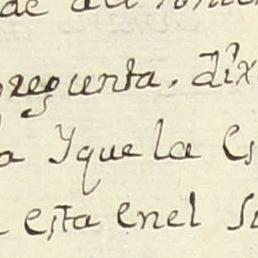 de
pregunta, dix
a Y que la Es
esta enel su